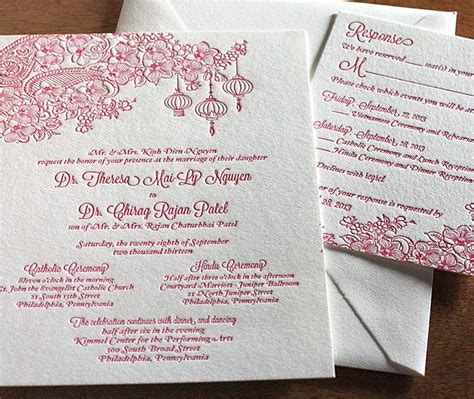 Mr. & Mrs. Kinh Dien Nguyen
request the honor of your presence at the marriage of their daughter
Dr. Theresa Mai-Ly Nguyen
to
Dr. Chirag Rajan Patel
son of Mr. & Mrs. Rajan Chaturbhai Patel
Saturday, the twenty eighth of September
two thousand thirteen
Catholic Ceremony
eleven o'clock in the morning
St. John the Evangelist Catholic Church
21 South 13th Street
Philadelphia, Pennsylvania
Hindu Ceremony
Half after three o'clock in the afternoon
Courtyard Marriott - Juniper Ballroom
21 North Juniper Street
Philadelphia, Pennsylvania
The celebration continues with dinner, and dancing
half after six in the evening
Kimmel Center for the Performing Arts
300 South Broad Street
Philadelphia, Pennsylvania
Response
We have reserved seat
M
Please check which events you will be
Friday, September 27, 2013
Vietnamese Ceremony and Rehears
Saturday, September 28, 2013
Catholic Ceremony and Lunch Reception
Hindu Ceremony and Dinner Reception
Declines with regret
of your response is requested by
2013